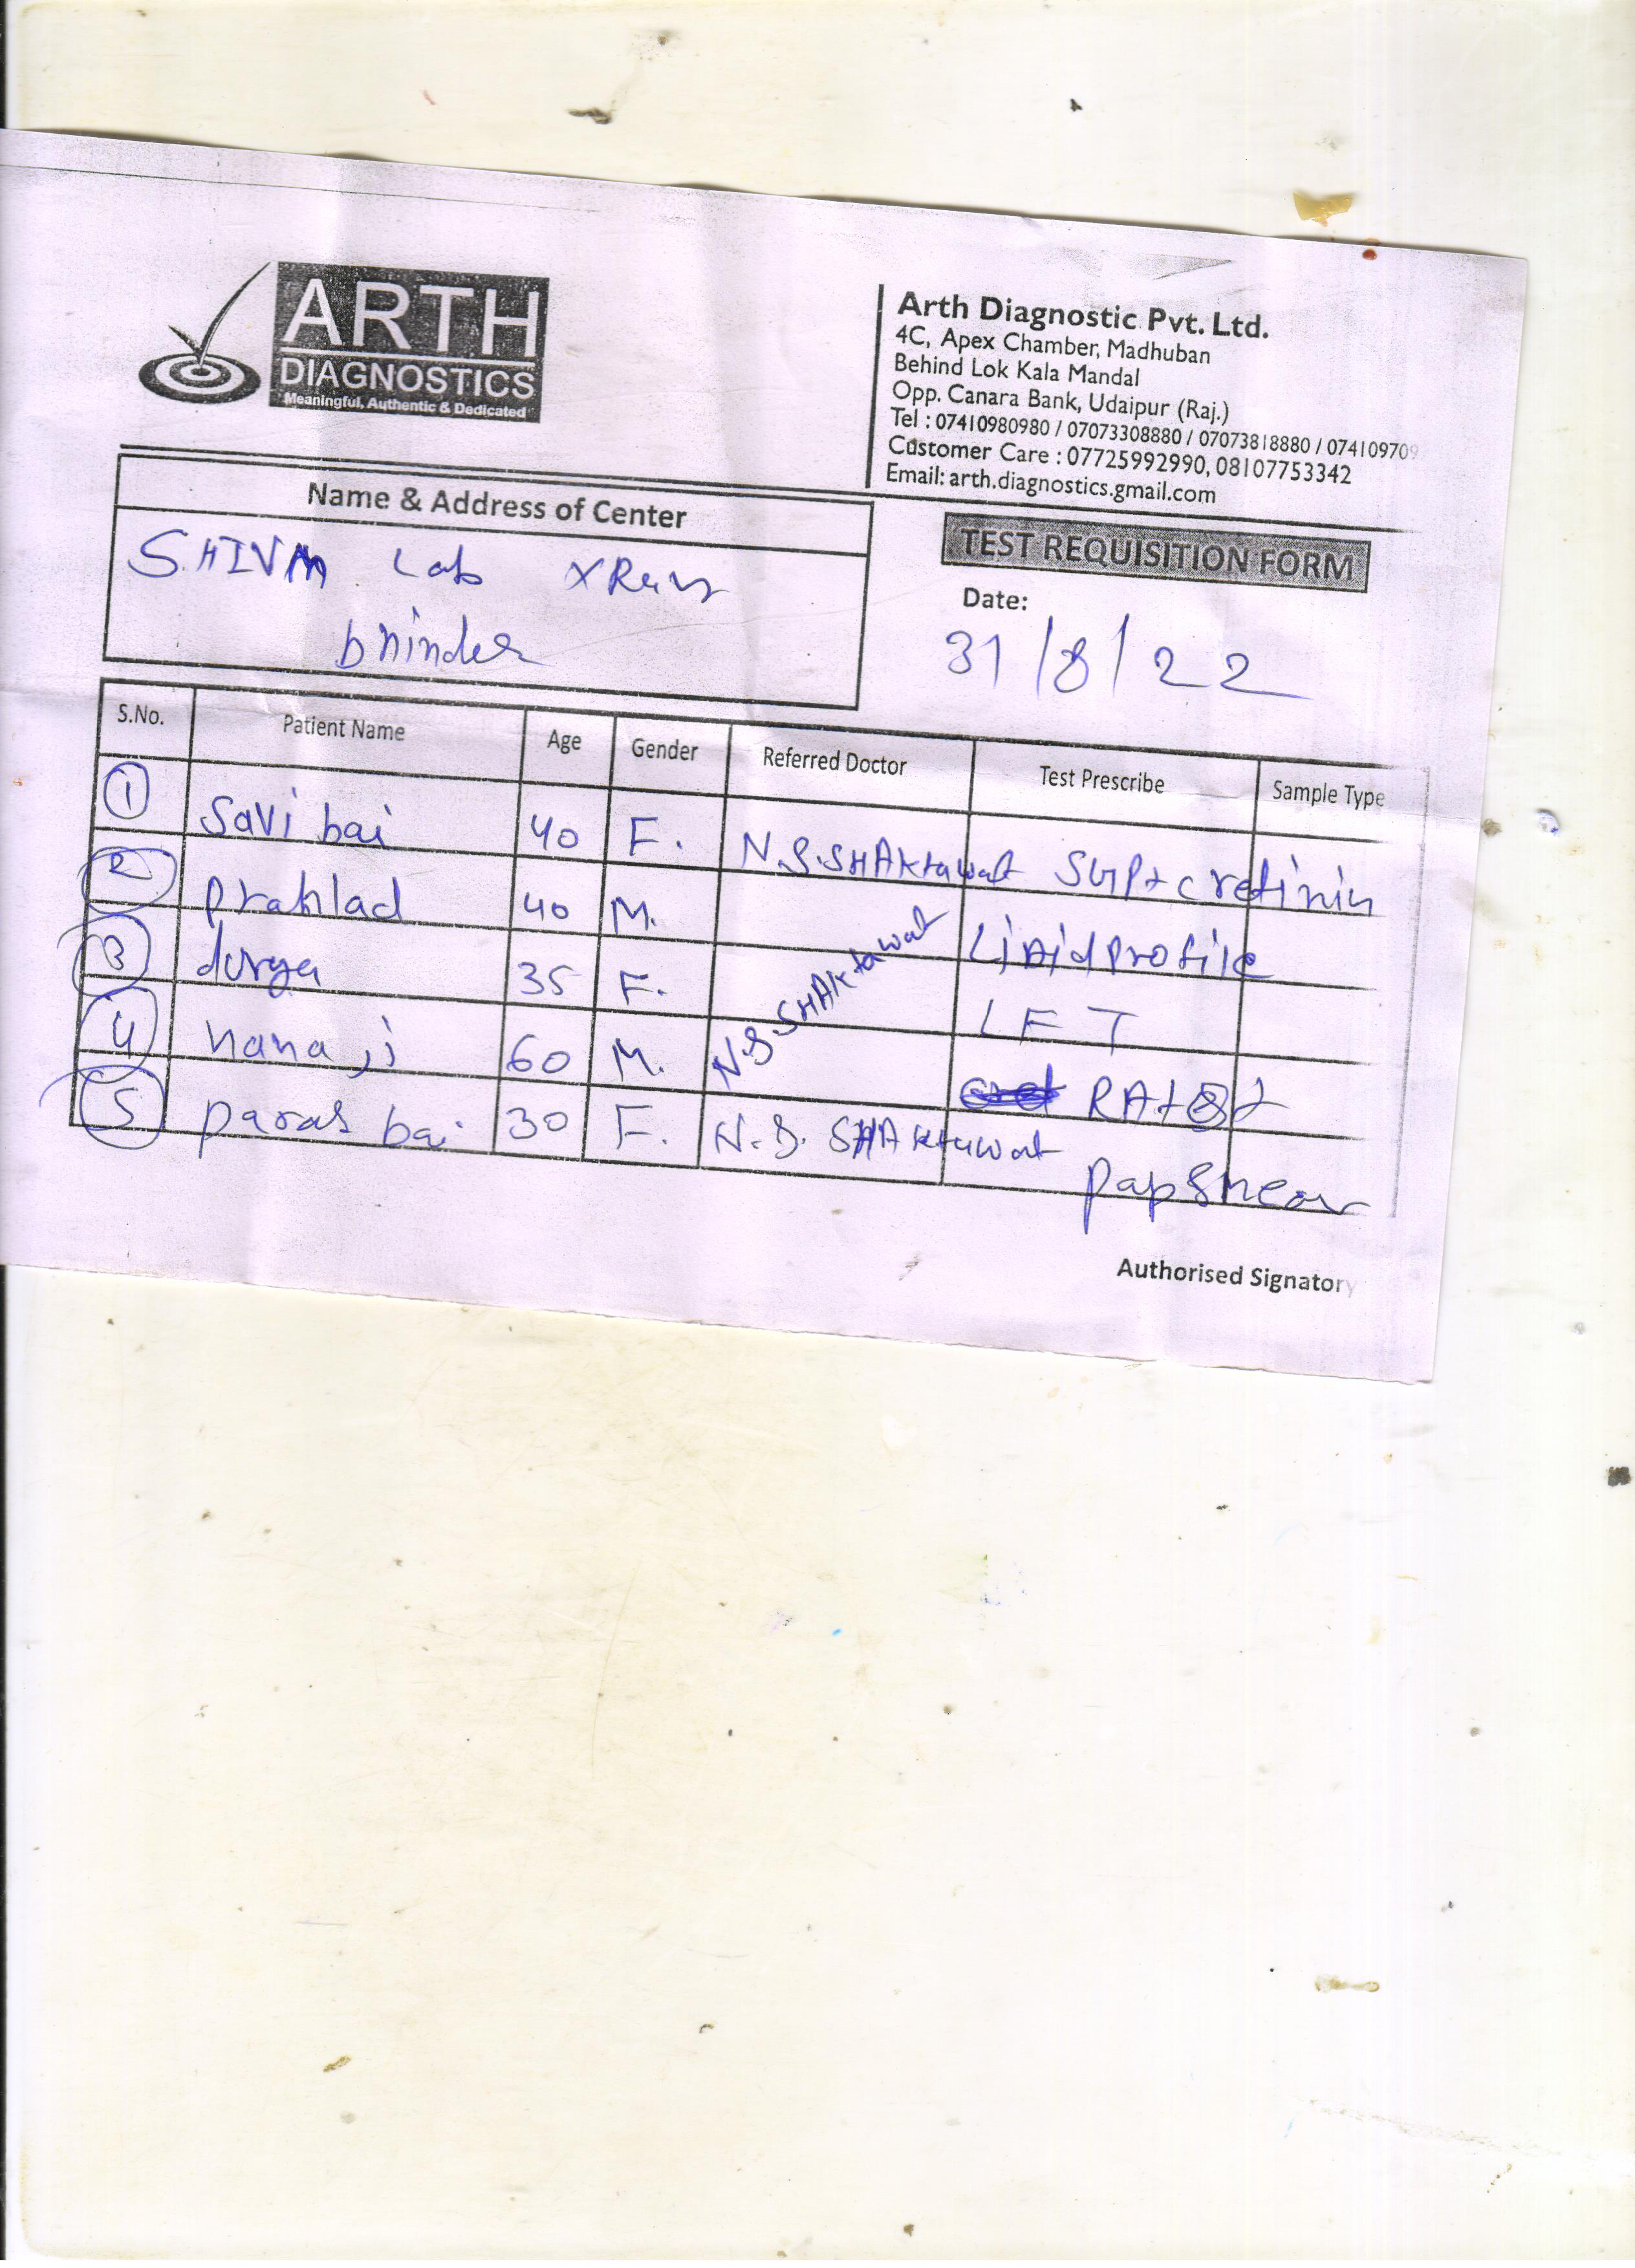 ARTH
DIAGNOSTICS
Meaningful, Authentic & Dedicated
Arth Diagnostic Pvt. Ltd.
4C, Apex Chamber, Madhuban
Behind Lok Kala Mandal
Opp. Canara Bank, Udaipur (Raj.)
Tel : 07410980980 / 07073308880 / 07073818880 / 074109709
Customer Care : 07725992990, 08107753342
Email: arth.diagnostics.gmail.com
Name & Address of Center
SHIVM Lab XRay
bhinder
TEST REQUISITION FORM
Date:
31/8/22
S.No. Patient Name Age Gender Referred Doctor Test Prescribe Sample Type
1 Savi bai 40 F. N.S.SHAktawat SGPT cretinin
2 prahlad 40 M. Lipid profile
3 durga 35 F. N.S SHAktawat LFT
4 nana ji 60 M. RAT
5 paras bai 30 F. N.S. SHAktawat papSmear
Authorised Signatory